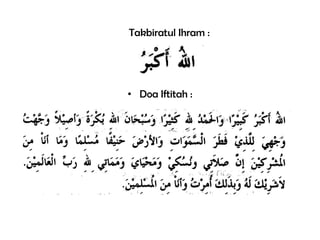 Takbiratul Ihram :
اللهُ أَكْبَرُ
• Doa Iftitah :
اللهُ أَكْبَرُ كَبِيْرًا وَالْحَمْدُ لِلهِ كَثِيْرًا وَسُبْحَانَ اللهِ بُكْرَةً وَأَصِيْلاً وَجَّهْتُ
وَجْهِيَ لِلَّذِيْ فَطَرَ السَّمَوَاتِ وَالأَرْضَ حَنِيْفًا مُسْلِمًا وَمَا أَنَاْ مِنَ
الْمُشْرِكِيْنَ إِنَّ صَلاَتِي وَنُسُكِيْ وَمَحْيَايَ وَمَمَاتِي لِلهِ رَبِّ الْعَالَمِيْنَ.
لاَشَرِيْكَ لَهُ وَبِذَلِكَ أُمِرْتُ وَأَنَاْ مِنَ الْمُسْلِمِيْنَ.